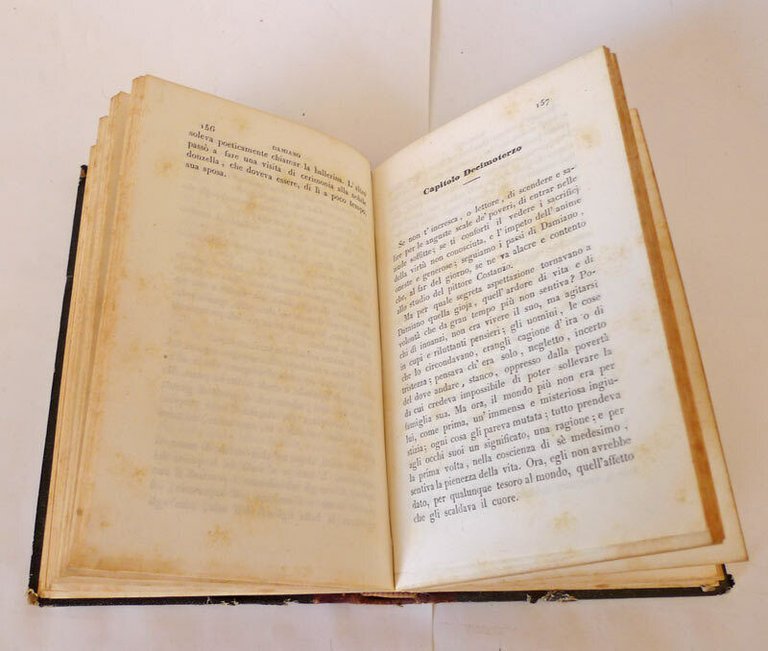 156
DAMIANO
soleva poeticamente chiamar la ballerina. L'altro
passò a fare una visita di cerimonia alla nobile
donzella, che doveva essere, di lì a poco tempo,
sua sposa.
157
Capitolo Decimoterzo
Se non t'incresca, o lettore, di scendere e sa-
lire per le anguste scale de' poveri, di entrar nelle
umide soffitte; se ti conforti il vedere i sacrificj
della virtù non conosciuta, e l'impeto dell'anime
oneste e generose; seguiamo i passi di Damiano,
che, al far del giorno, se ne va alacre e contento
allo studio del pittore Costanzo.
Ma per quale segreta aspettazione tornavano a
Damiano quella gioja, quell'ardore di vita e di
volontà che da gran tempo più non sentiva? Po-
chi dì innanzi, non era vivere il suo, ma agitarsi
in cupi e riluttanti pensieri; gli uomini, le cose
che lo circondavano, erangli cagione d'ira o di
tristezza; pensava ch'era solo, negletto, incerto
del dove andare, stanco, oppresso dalla povertà
da cui credeva impossibile di poter sollevare la
famiglia sua. Ma ora, il mondo più non era per
lui, come prima, un'immensa e misteriosa ingiu-
stizia; ogni cosa gli pareva mutata; tutto prendeva
agli occhi suoi un significato, una ragione; e per
la prima volta, nella coscienza di sè medesimo,
sentiva la pienezza della vita. Ora, egli non avrebbe
dato, per qualunque tesoro al mondo, quell'affetto
che gli scaldava il cuore.